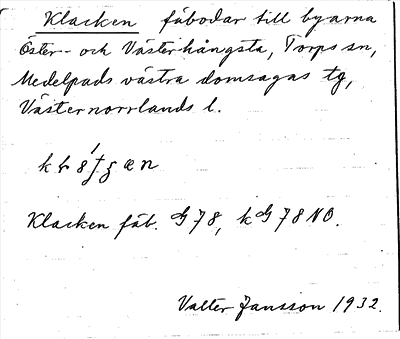 Klacken fäbodar till byarna
Öster- och Västerhångsta, Torps sn,
Medelpads västra domsagas tg,
Västernorrlands l.
Klacken fäb. G 78, kG 78 NO.
Valter Jansson 1932.